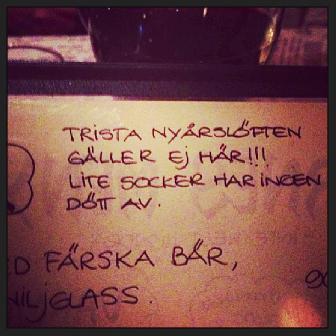 TRISTA NYÅRSLÖFTEN
GÄLLER EJ HÄR!!!
LITE SOCKER HAR INGEN
DÖTT AV.
D FÄRSKA BÄR,
NILJGLASS.